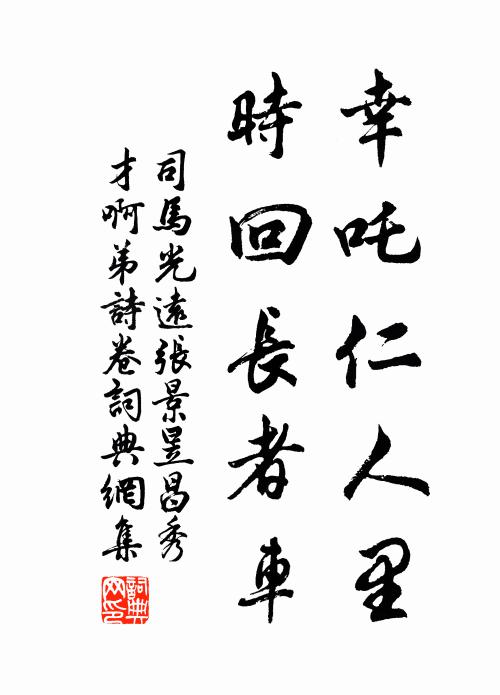 幸吒仁人里
時回長者車
司馬光遠張景昱昌秀
才啊弟詩卷詞典網集
詞典网印